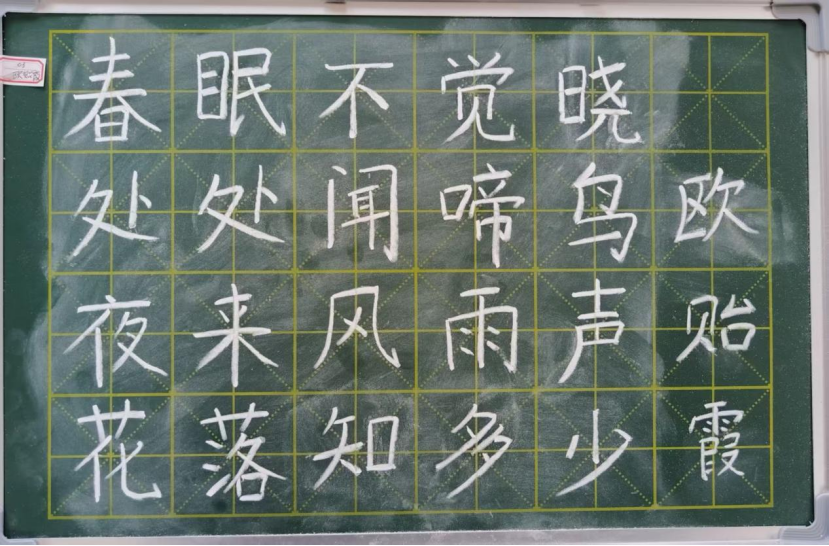 春眠不觉晓
处处闻啼鸟
夜来风雨声
花落知多少
欧贻霞